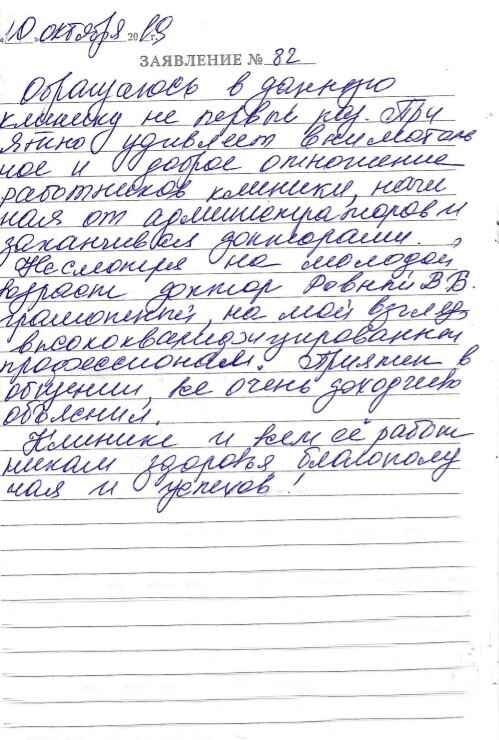 10 октября 2019 г.
ЗАЯВЛЕНИЕ № 82
Обращаюсь в данную
клинику не первый раз. При
ятно удивляет вниматель
ное и доброе отношение
работников клиники, начи
ная от администраторов и
заканчивая докторами.
Несмотря на молодой
возраст доктор Ровный В.В.
грамотный, на мой взгляд
высококвалифицированный
профессионал. Приятен в
общении, все очень доходчиво
объяснил.
Клинике и всем её работ
никам здоровья благополу
чая и успехов!